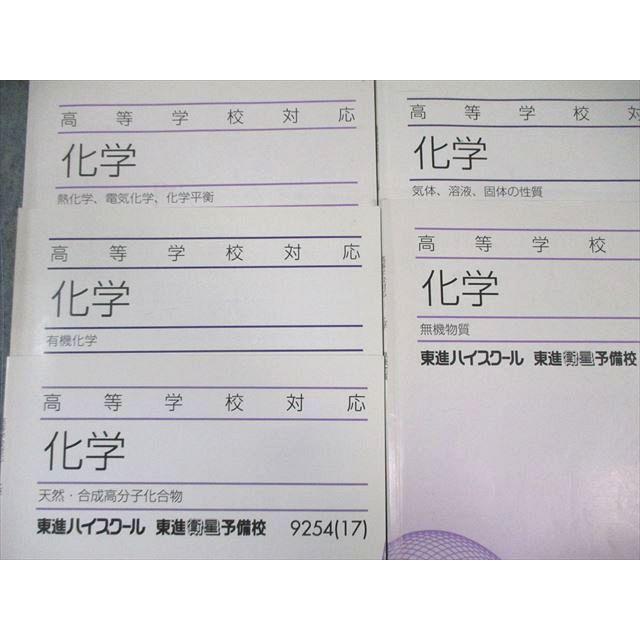 高等学校対応
化学
熱化学、電気化学、化学平衡
高等学校対応
化学
有機化学
高等学校対応
化学
天然・合成高分子化合物
東進ハイスクール 東進衛星予備校 9254(17)
高等学校対
化学
気体、溶液、固体の性質
高等学校
化学
無機物質
東進ハイスクール 東進衛星予備校